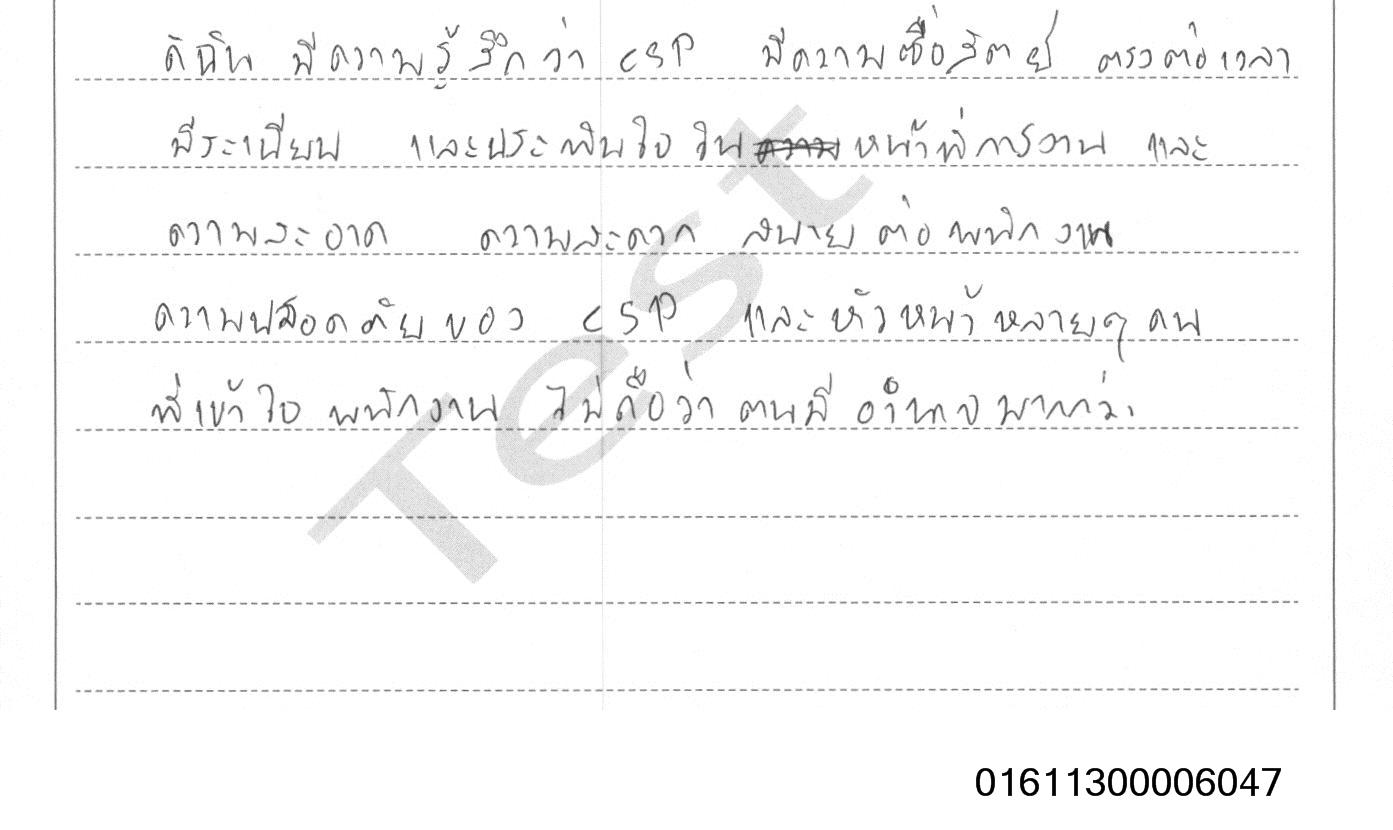 ดิฉัน มีความรู้สึกว่า CSP มีความซื่อสัตย์ ตรงต่อเวลา
มีระเบียบ และประทับใจ ใน หน้าที่การงาน และ
ความสะอาด ความสะดวก สบาย ต่อ พนักงาน
ความปลอดภัยของ CSP และหัวหน้าหลายๆ คน
ที่เข้าใจ พนักงาน ไม่ถือว่า ตนมี อำนาจ มากกว่า
Test
01611300006047